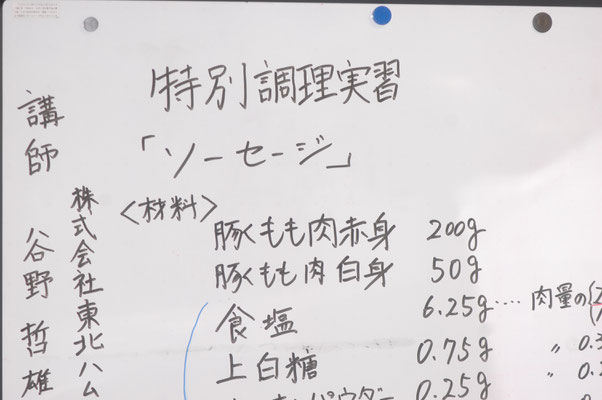 特別調理実習
「ソーセージ」
講師 谷野哲雄
株式会社東北ハム
〈材料〉
豚もも肉赤身 200g
豚もも肉白身 50g
食塩 6.25g‥‥肉量の
上白糖 0.75g 〃 0.3
パウダー 0.25g 〃 0.